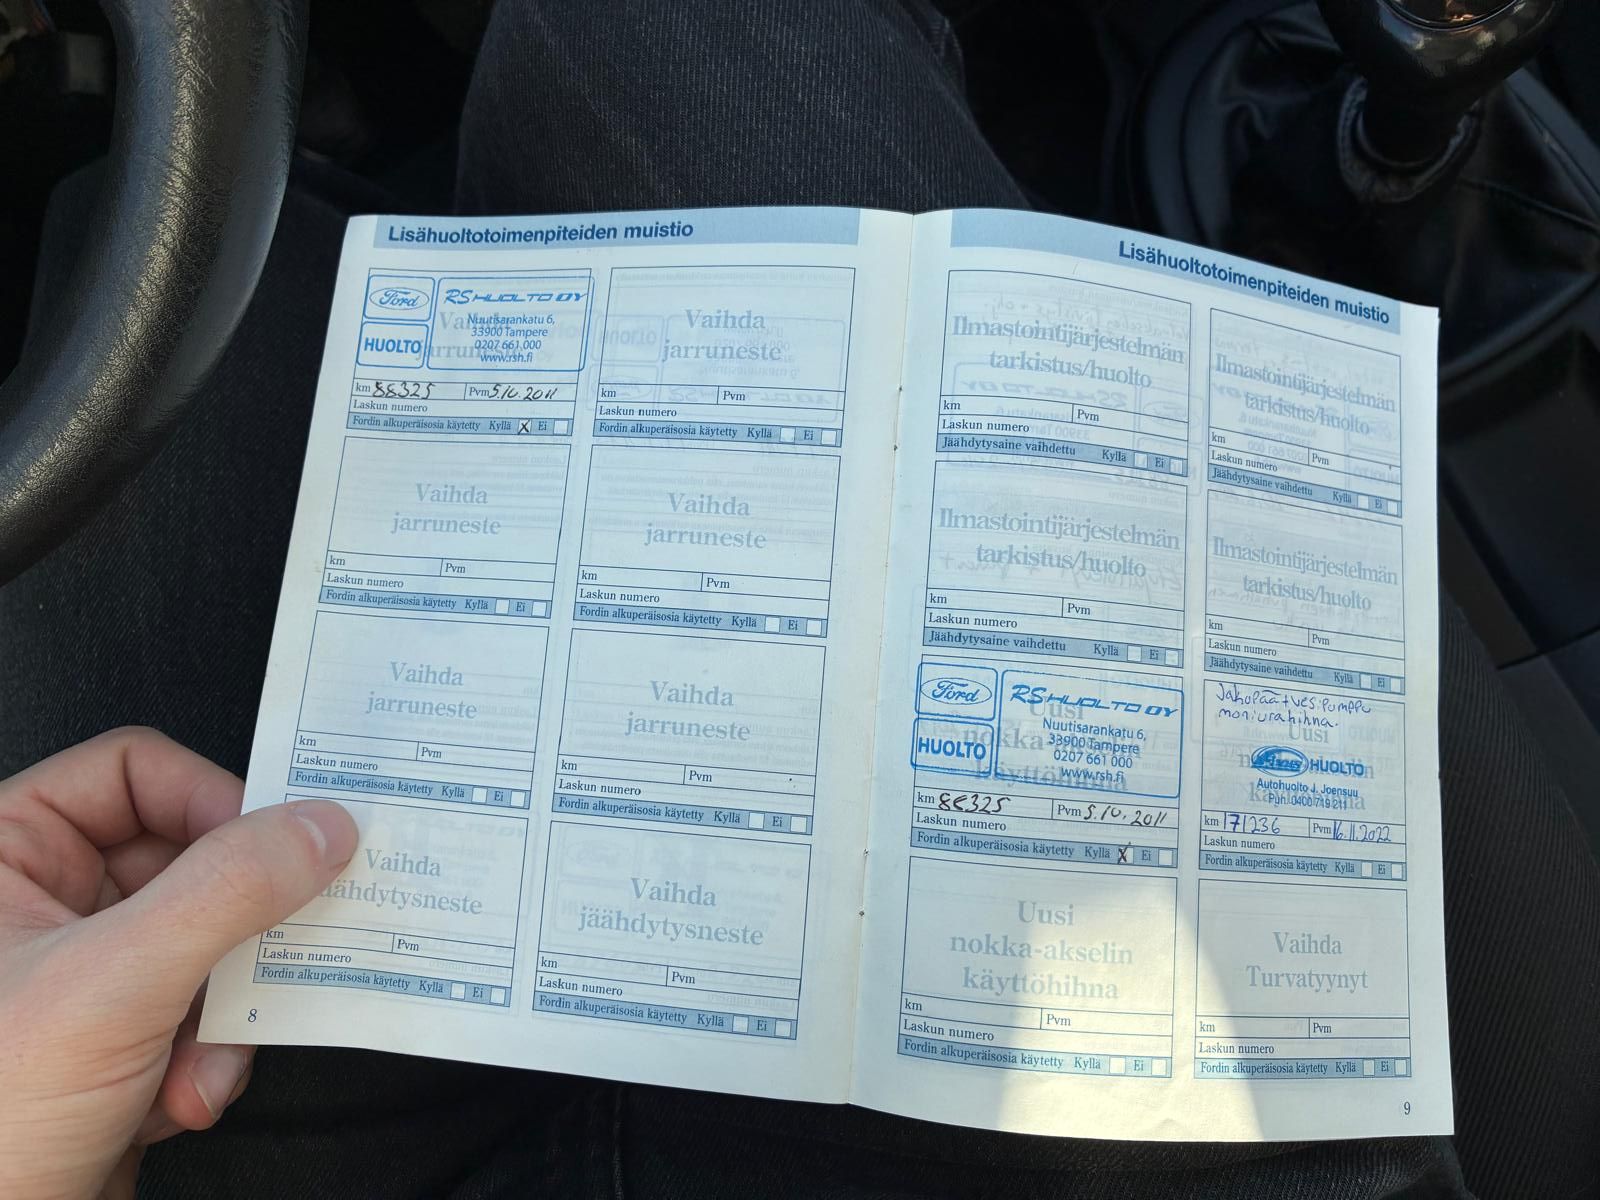 Lisähuoltotoimenpiteiden muistio
Ford
HUOLTO
RS HUOLTO OY
Nuutisarankatu 6,
33900 Tampere
0207 661 000
www.rsh.fi
Vaihda
jarruneste
km 88325 Pvm 5.10.2011
Laskun numero
Fordin alkuperäisosia käytetty Kyllä X Ei
Vaihda
jarruneste
km Pvm
Laskun numero
Fordin alkuperäisosia käytetty Kyllä Ei
Vaihda
jarruneste
km Pvm
Laskun numero
Fordin alkuperäisosia käytetty Kyllä Ei
Vaihda
jarruneste
km Pvm
Laskun numero
Fordin alkuperäisosia käytetty Kyllä Ei
Vaihda
jarruneste
km Pvm
Laskun numero
Fordin alkuperäisosia käytetty Kyllä Ei
Vaihda
jarruneste
km Pvm
Laskun numero
Fordin alkuperäisosia käytetty Kyllä Ei
Vaihda
jäähdytysneste
km Pvm
Laskun numero
Fordin alkuperäisosia käytetty Kyllä Ei
Vaihda
jäähdytysneste
km Pvm
Laskun numero
Fordin alkuperäisosia käytetty Kyllä Ei
8
Lisähuoltotoimenpiteiden muistio
Ilmastointijärjestelmän
tarkistus/huolto
km Pvm
Laskun numero
Jäähdytysaine vaihdettu Kyllä Ei
Ilmastointijärjestelmän
tarkistus/huolto
km Pvm
Laskun numero
Jäähdytysaine vaihdettu Kyllä Ei
Ilmastointijärjestelmän
tarkistus/huolto
km Pvm
Laskun numero
Jäähdytysaine vaihdettu Kyllä Ei
Ilmastointijärjestelmän
tarkistus/huolto
km Pvm
Laskun numero
Jäähdytysaine vaihdettu Kyllä Ei
Ford
HUOLTO
RS HUOLTO OY
Nuutisarankatu 6,
33900 Tampere
0207 661 000
www.rsh.fi
Uusi
nokka-akselin
käyttöhihna
km 88325 Pvm 5.10.2011
Laskun numero
Fordin alkuperäisosia käytetty Kyllä X Ei
Jakopää + ves.pumppu
moniurahihna.
Uusi
HUOLTO
Autohuolto J. Joensuu
Puh. 0400 719 211
km 171236 Pvm 16.11.2022
Laskun numero
Fordin alkuperäisosia käytetty Kyllä Ei
Uusi
nokka-akselin
käyttöhihna
km Pvm
Laskun numero
Fordin alkuperäisosia käytetty Kyllä Ei
Vaihda
Turvatyynyt
km Pvm
Laskun numero
Fordin alkuperäisosia käytetty Kyllä Ei
9